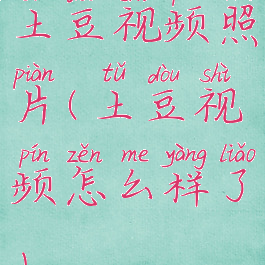 土豆视频照
piàn tǔ dòu shì
片(土豆视
pín zěn me yàng liǎo
频怎么样了
)